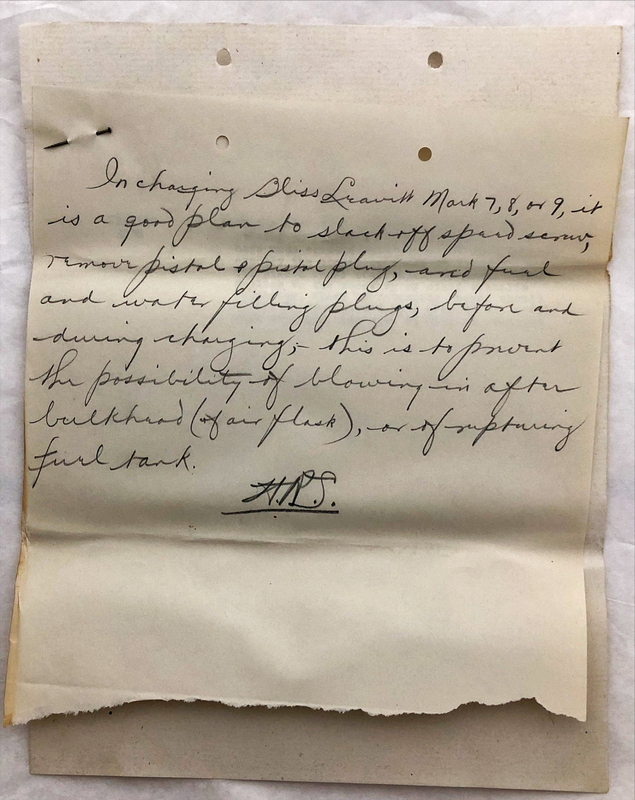 In charging Bliss Leavitt Mark 7, 8, or 9, it
is a good plan to slack off speed screw,
remove pistol & pistol plug, and fuel
and water filling plugs, before and
during charging; - this is to prevent
the possibility of blowing in after
bulkhead (of air flask), or of rupturing
fuel tank.
H.R.S.